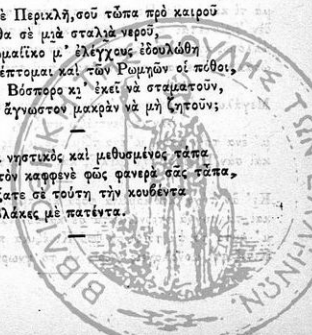 ὲ Περικλῆ, σοῦ τὦπα πρὸ καιροῦ
θα σὲ μιὰ σταλιὰ νεροῦ,
ωμαίϊκο μ' ἐλέγχους ἐδουλώθη
έπτομαι καὶ τῶν Ρωμηῶν οἱ πόθοι,
Βόσπορο κι' ἐκεῖ νὰ σταματοῦν,
ἄγνωστον μακρὰν νὰ μὴ ζητοῦν;
νηστικὸς καὶ μεθυσμένος τάπα
τὸν καφφενὲ φῶς φανερὰ σᾶς τἆπα,
ξατε σὲ τούτη τὴν κουβέντα
βλάκες μὲ πατέντα.
ΒΙΒΛΙΟΘΗΚΗ ΤΗΣ ΒΟΥΛΗΣ ΤΩΝ ΕΛΛΗΝΩΝ